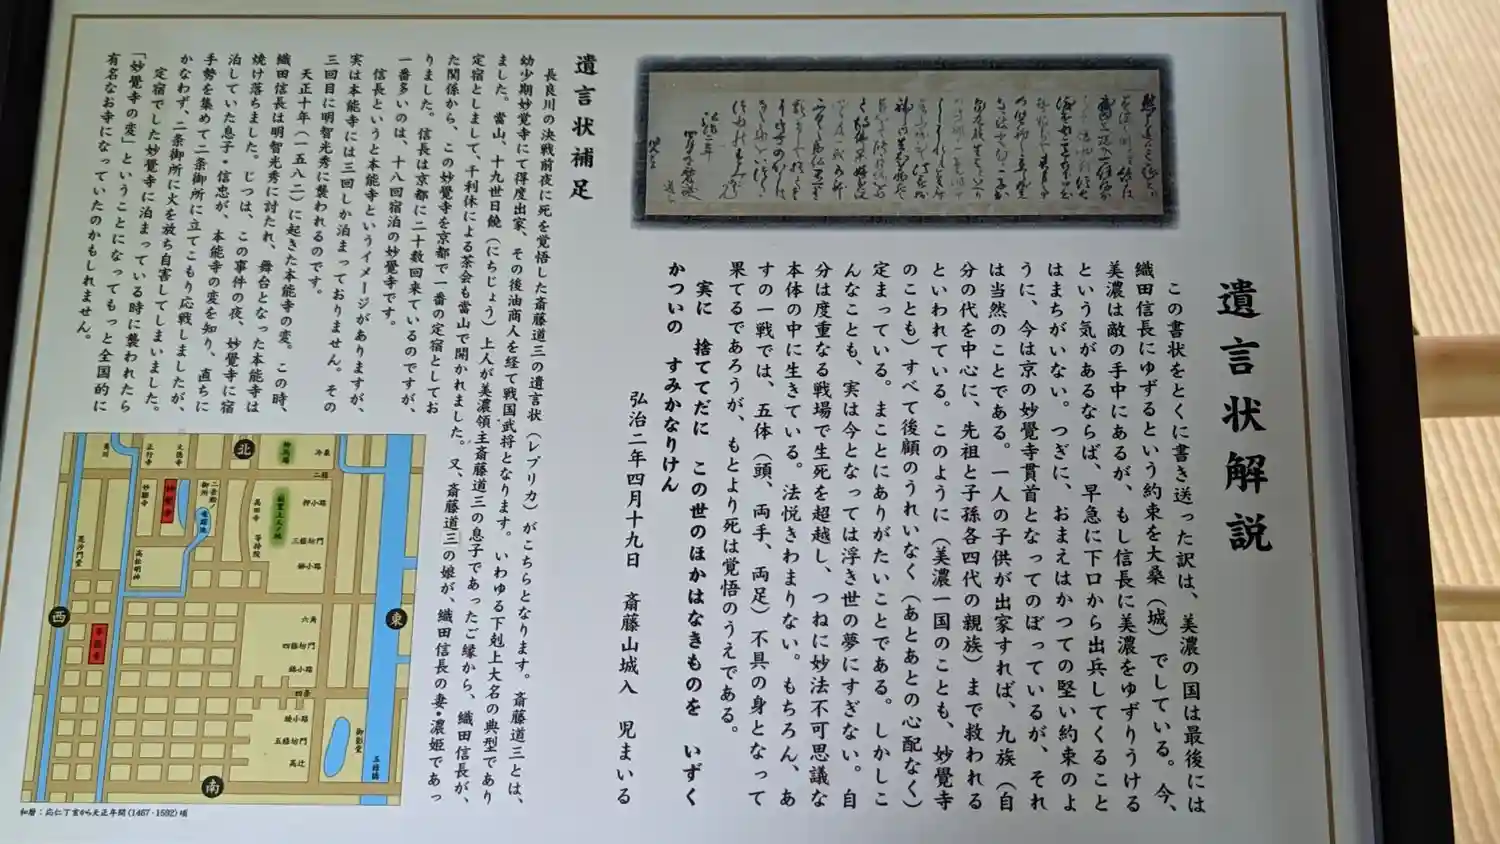 遺言状解説
この書状をとくに書き送った訳は、美濃の国は最後には
織田信長にゆずるという約束を大桑（城）でしている。今、
美濃は敵の手中にあるが、もし信長に美濃をゆずりうける
という気があるならば、早急に下口から出兵してくること
はまちがいない。つぎに、おまえはかつての堅い約束のよ
うに、今は京の妙覺寺貫首となってのぼっているが、それ
は当然のことである。一人の子供が出家すれば、九族（自
分の代を中心に、先祖と子孫各四代の親族）まで救われる
といわれている。このように（美濃一国のことも、妙覺寺
のことも）すべて後顧のうれいなく（あとあとの心配なく）
定まっている。まことにありがたいことである。しかしこ
んなことも、実は今となっては浮き世の夢にすぎない。自
分は度重なる戦場で生死を超越し、つねに妙法不可思議な
本体の中に生きている。法悦きわまりない。もちろん、あ
すの一戦では、五体（頭、両手、両足）不具の身となって
果てるであろうが、もとより死は覚悟のうえである。
実に　捨ててだに　この世のほかはなきものを　いずく
かついの　すみかなりけん
弘治二年四月十九日　斎藤山城入　児まいる
遺言状補足
長良川の決戦前夜に死を覚悟した斎藤道三の遺言状（レプリカ）がこちらとなります。斎藤道三とは、
幼少期妙覚寺にて得度出家、その後油商人を経て戦国武将となります。いわゆる下剋上大名の典型であり
ました。當山、十九世日饒（にちじょう）上人が美濃領主斎藤道三の息子であったご縁から、織田信長が、
定宿としまして、千利休による茶会も當山で開かれました。又、斎藤道三の娘が、織田信長の妻・濃姫であっ
た関係から、この妙覺寺を京都で一番の定宿としてお
りました。信長は京都に二十数回来ているのですが、
一番多いのは、十八回宿泊の妙覺寺です。
信長というと本能寺というイメージがありますが、
実は本能寺には三回しか泊まっておりません。その
三回目に明智光秀に襲われるのです。
天正十年（一五八二）に起きた本能寺の変。この時、
織田信長は明智光秀に討たれ、舞台となった本能寺は
焼け落ちました。じつは、この事件の夜、妙覺寺に宿
泊していた息子・信忠が、本能寺の変を知り、直ちに
手勢を集めて二条御所に立てこもり応戦しましたが、
かなわず、二条御所に火を放ち自害してしまいました。
定宿でした妙覺寺に泊まっている時に襲われたら
「妙覺寺の変」ということになってもっと全国的に
有名なお寺になっていたのかもしれません。
北
東
西
南
冷泉
二條
押小路
三條坊門
六角
四條坊門
錦小路
四条
綾小路
五條坊門
高辻
五條橋
御影堂
正行寺
文徳寺
妙顕寺
妙覺寺
二条殿ノ御所
高松明神
等持院
毘沙門堂
本能寺
和暦：応仁丁亥から天正年間(1467-1592)頃